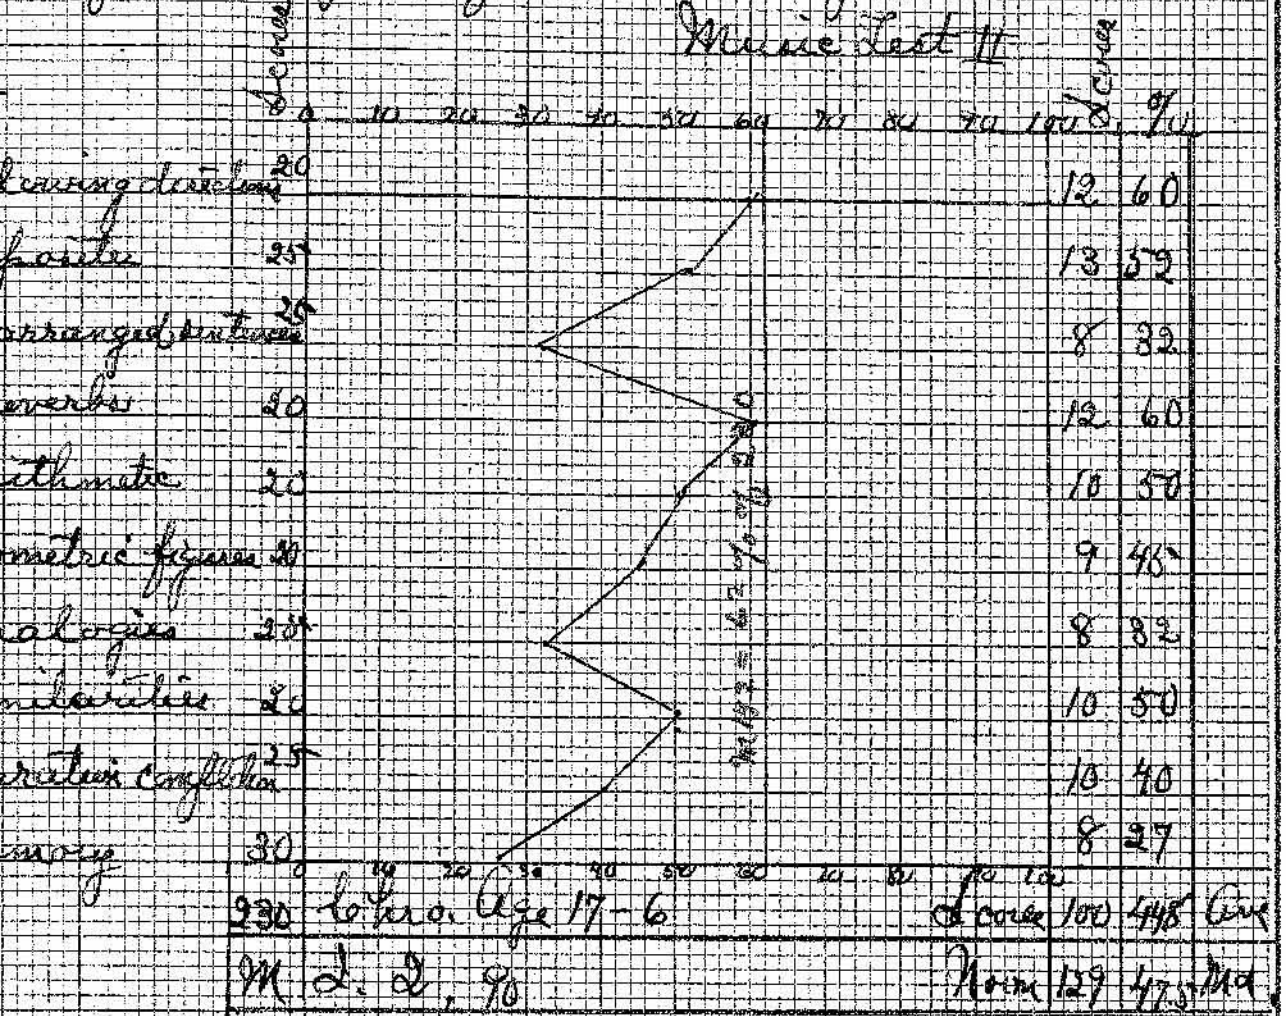 Music Test II
Scores 0 10 20 30 40 50 60 70 80 90 100 Scores %
lowing directions 20 12 60
posites 25 13 52
arranged sentences 25 8 32
overbs 20 12 60
ithmetic 20 10 50
ometric figures 20 9 45
alogies 25 8 32
milarities 20 10 50
arative completion 25 10 40
mory 30 8 27
0 10 20 30 40 50 60 70 80 90 100
230 Chro. Age 17-6 Score 100 448 Ave
M I. Q. 90 Norm 129 475 Md.